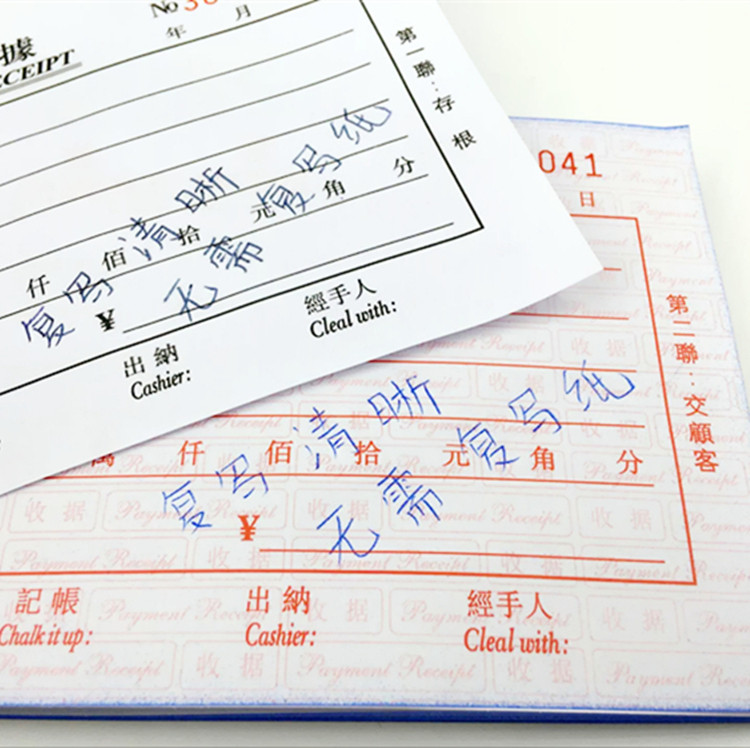 No 30
據
RECEIPT
年 月
第一聯:存根
仟 佰 拾 元 角 分
复写清晰
无需复写纸
¥
出納
Cashier:
經手人
Cleal with:
041
日
第二聯:交顧客
萬 仟 佰 拾 元 角 分
复写清晰
无需复写纸
¥
記帳
Chalk it up:
出納
Cashier:
經手人
Cleal with:
收据 Payment Receipt